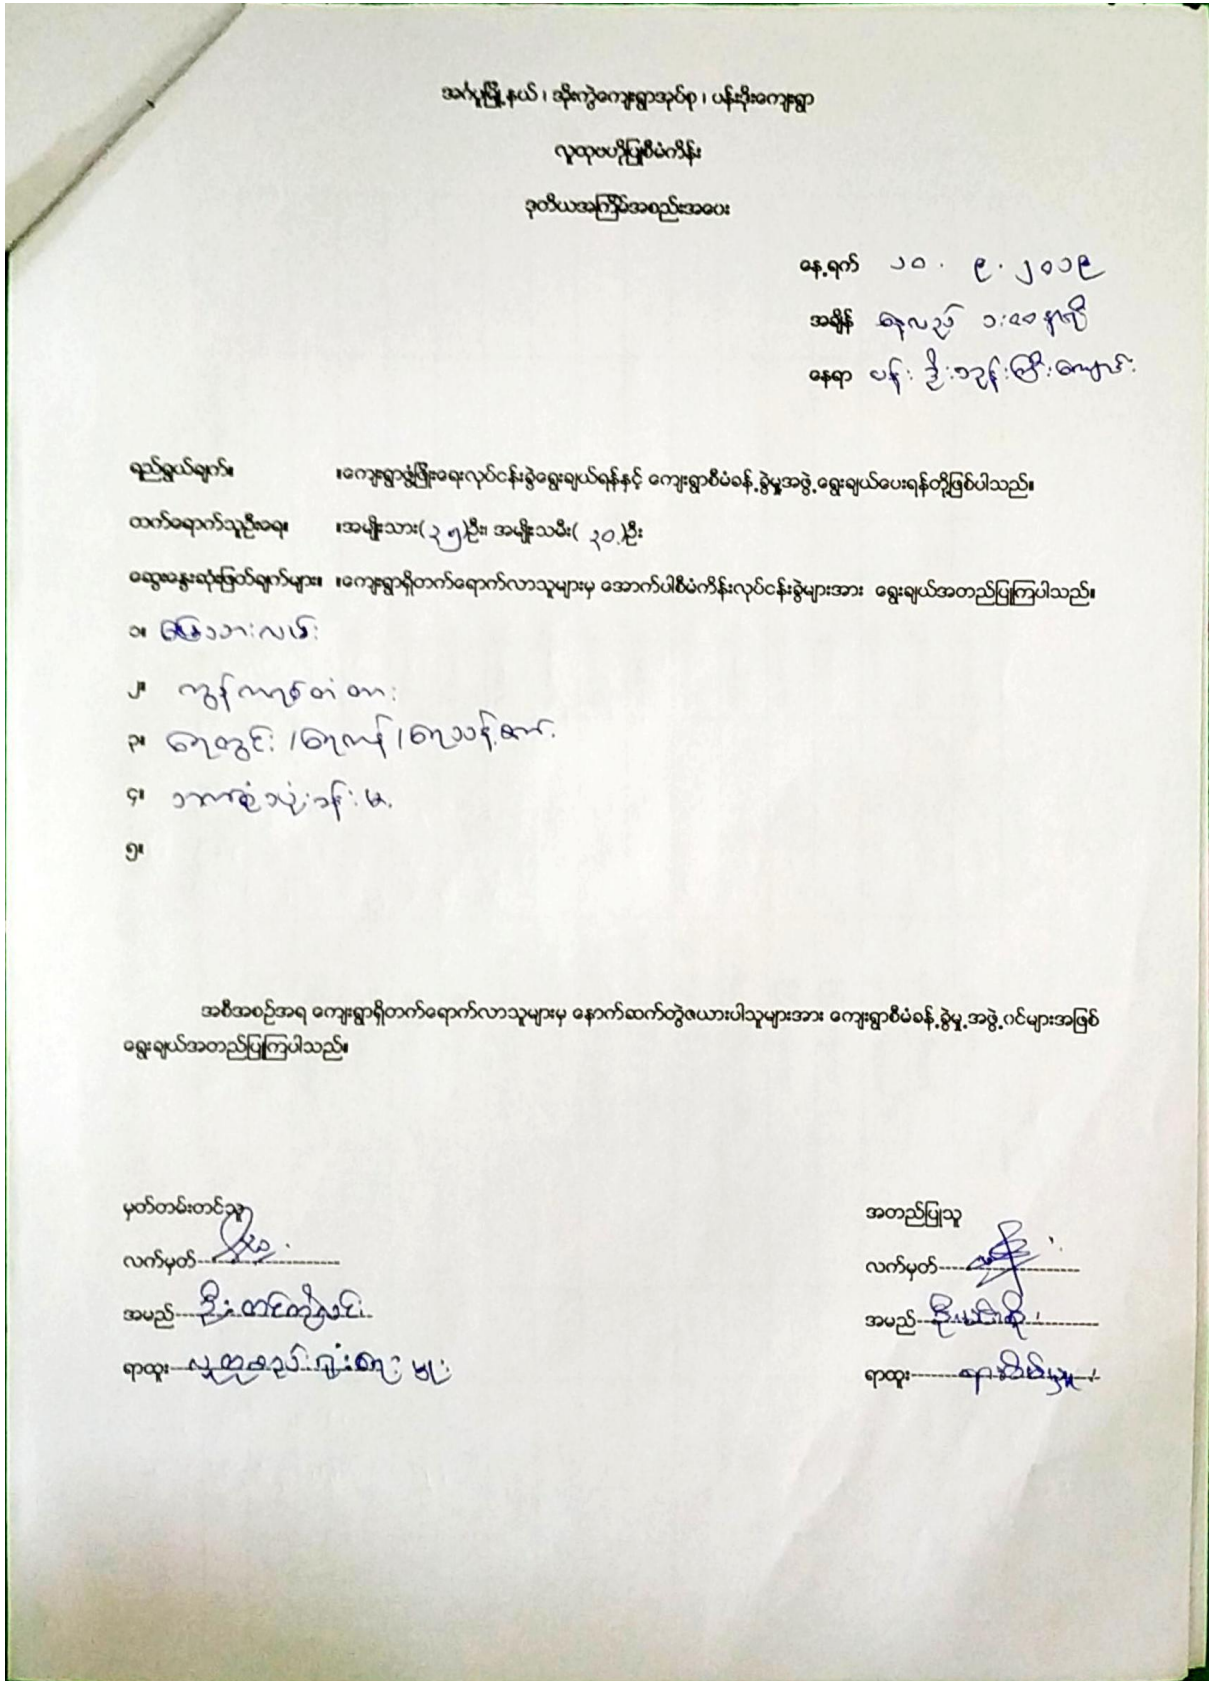 အင်္ဂပူမြို့နယ် ၊ အိုးကွဲကျေးရွာအုပ်စု ၊ ပန်းဒိုးကျေးရွာ
လူထုဗဟိုပြုစီမံကိန်း
ဒုတိယအကြိမ်အစည်းအဝေး
နေ့ရက် ၂၀ . ၉ . ၂၀၁၉
အချိန် နေ့လည် ၁:၀၀ နာရီ
နေရာ ပန်းဒိုးဘုန်းကြီးကျောင်း
ရည်ရွယ်ချက်။ ။ကျေးရွာဖွံ့ဖြိုးရေးလုပ်ငန်းခွဲရွေးချယ်ရန်နှင့် ကျေးရွာစီမံခန့်ခွဲမှုအဖွဲ့ရွေးချယ်ပေးရန်တို့ဖြစ်ပါသည်။
တက်ရောက်သူဦးရေ။ ။အမျိုးသား(၃၅)ဦး၊ အမျိုးသမီး( ၃၀ )ဦး
ဆွေးနွေးဆုံးဖြတ်ချက်များ။ ။ကျေးရွာရှိတက်ရောက်လာသူများမှ အောက်ပါစီမံကိန်းလုပ်ငန်းခွဲများအား ရွေးချယ်အတည်ပြုကြပါသည်။
၁။ မြေသားလမ်း
၂။ ကွန်ကရစ်တံတား
၃။ ရေတွင်း / ရေကန် / ရေသန့်စက်
၄။
၅။
အစီအစဉ်အရ ကျေးရွာရှိတက်ရောက်လာသူများမှ နောက်ဆက်တွဲဇယားပါသူများအား ကျေးရွာစီမံခန့်ခွဲမှု့အဖွဲ့ဝင်များအဖြစ်
ရွေးချယ်အတည်ပြုကြပါသည်။
မှတ်တမ်းတင်သူ
အတည်ပြုသူ
လက်မှတ်
လက်မှတ်
အမည် ဦး
အမည် ဦး
ရာထူး လူထုစည်းရုံးရေးမှူး
ရာထူး ရာအိမ်မှူး